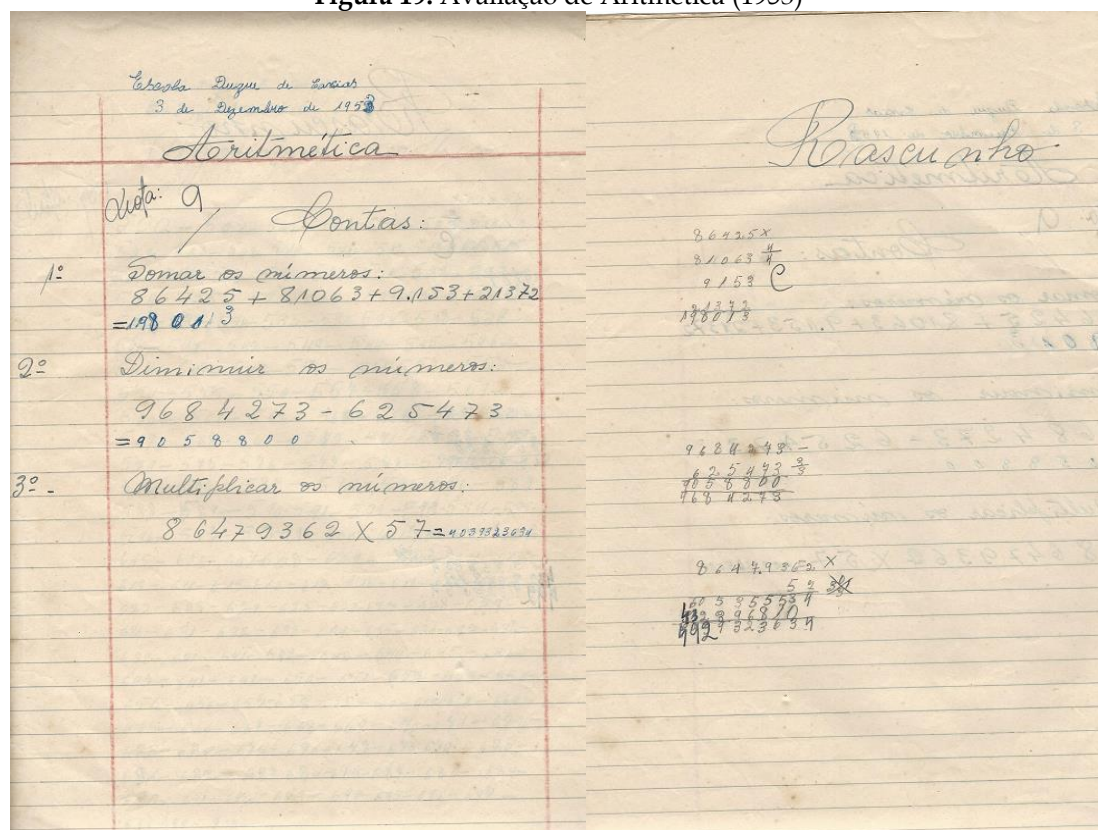 Figura 19: Avaliação de Aritmética (1953)
Escola Duque de Caxias
3 de Dezembro de 1953
Aritmética
Nota: 9
Contas:
1º Somar os números:
86425 + 81063 + 9.153 + 21372
=198013
2º Diminuir os números:
9684273 - 625473
=9058800
3º - Multiplicar os números:
86479362 X 57=
Rascunho
86425 x
81063 4/4
9153 C
21372
198013
9684273 -
625473 3/3
9058800
9684273
86479362 X